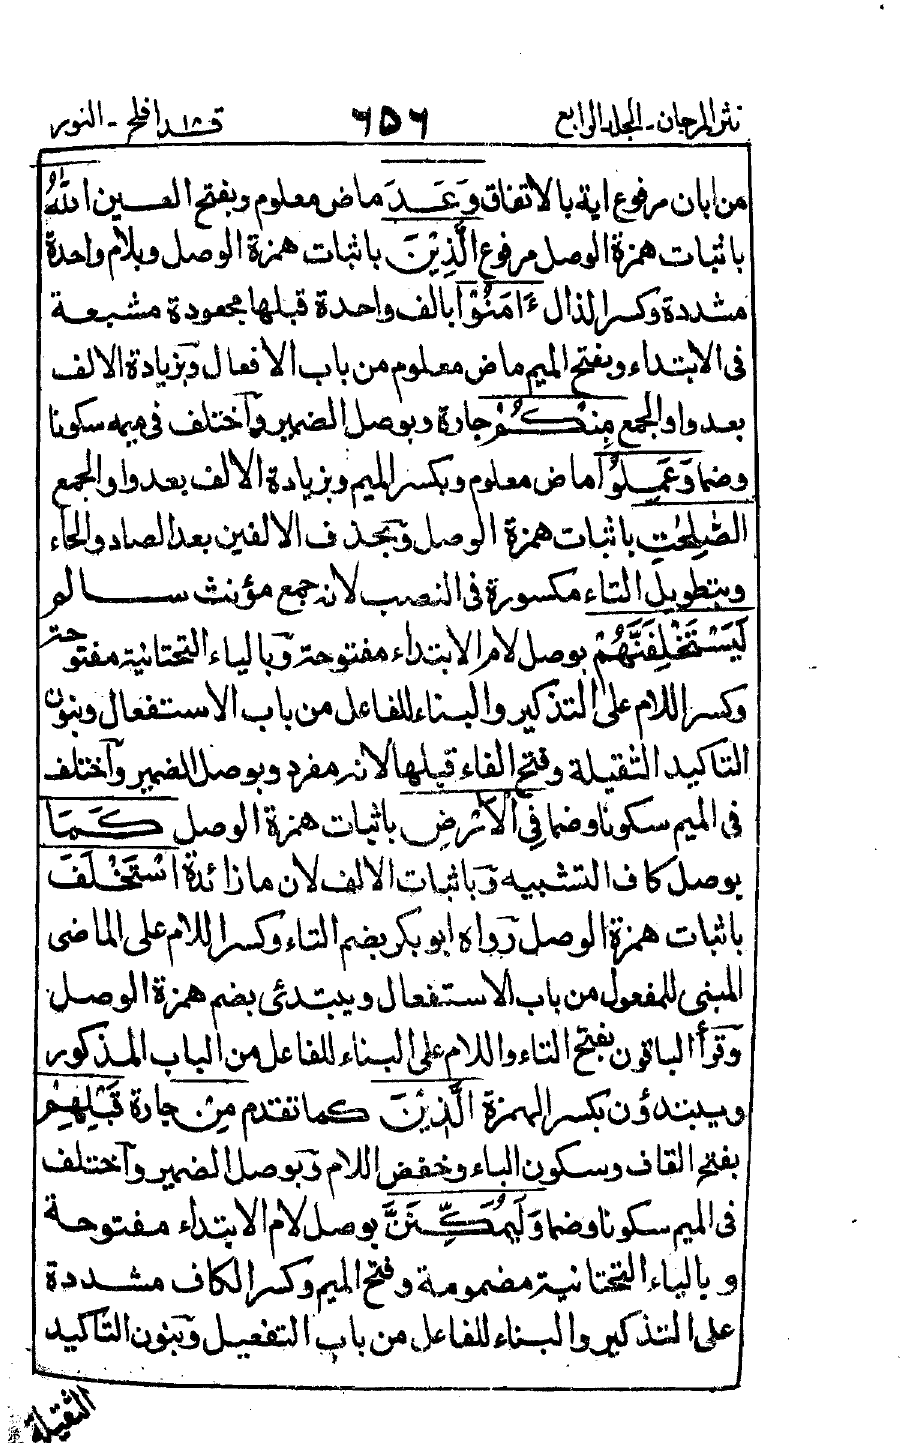 نثر المرجان - المجلد الرابع ٦٥٦ قد افلح ١٨ - النور
من ابان مرفوع اية بالاتفاق وَعَدَ ماض معلوم وبفتح العين اللّٰهُ
باثبات همزة الوصل مرفوع الَّذِيْنَ باثبات همزة الوصل وبلام واحدة
مشددة وكسر الذال ءَامَنُوْا بالف واحدة قبلها مجعودة مشبعة
فى الابتداء وبفتح الميم ماض معلوم من باب الافعال وبزيادة الالف
بعد واو الجمع مِنْكُمْ جارة وبوصل الضمير واختلف فى ميمه سكونا
وضما وَعَمِلُوا ماض معلوم وبكسر الميم وبزيادة الالف بعد واو الجمع
الصّٰلِحٰتِ باثبات همزة الوصل وبحذف الالفين بعد الصاد والحاء
وبتطويل التاء مكسورة فى النصب لانه جمع مؤنث سالم
لَيَسْتَخْلِفَنَّهُمْ بوصل لام الابتداء مفتوحة وبالياء التحتانية مفتوحة
وكسر اللام على التذكير والبناء للفاعل من باب الاستفعال وبنون
التاكيد الثقيلة وفتح الفاء قبلها لانه مفرد وبوصل الضمير واختلف
فى الميم سكونا وضما فِى الْاَرْضِ باثبات همزة الوصل كَمَا
بوصل كاف التشبيه وباثبات الالف لان ما زائدة اسْتَخْلَفَ
باثبات همزة الوصل رواه ابو بكر بضم التاء وكسر اللام على الماضى
المبنى للمفعول من باب الاستفعال ويبتدئ بضم همزة الوصل
وقرأ الباقون بفتح التاء واللام على البناء للفاعل من الباب المذكور
ويبتدؤن بكسر الهمزة الَّذِيْنَ كما تقدم مِنْ جارة قَبْلِهِمْ
بفتح القاف وسكون الباء وخفض اللام وبوصل الضمير واختلف
فى الميم سكونا وضما وَلَيُمَكِّنَنَّ بوصل لام الابتداء مفتوحة
وبالياء التحتانية مضمومة وفتح الميم وكسر الكاف مشددة
على التذكير والبناء للفاعل من باب التفعيل وبنون التاكيد
الثقيلة